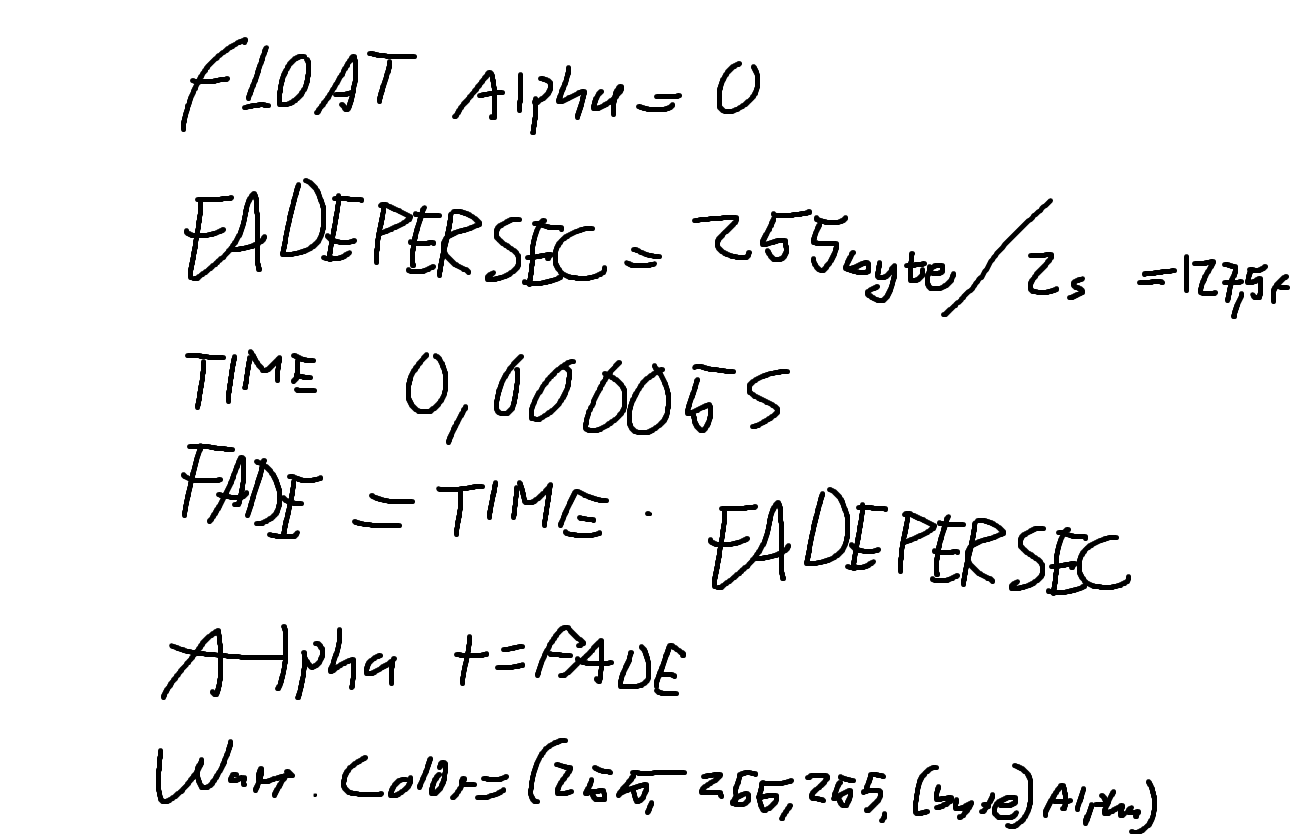 FLOAT Alpha = 0
FADEPERSEC = 255byte/2s = 127,5f
TIME 0,00005 S
FADE = TIME · FADEPERSEC
Alpha += FADE
Color = (255, 255, 255, (byte) Alpha)